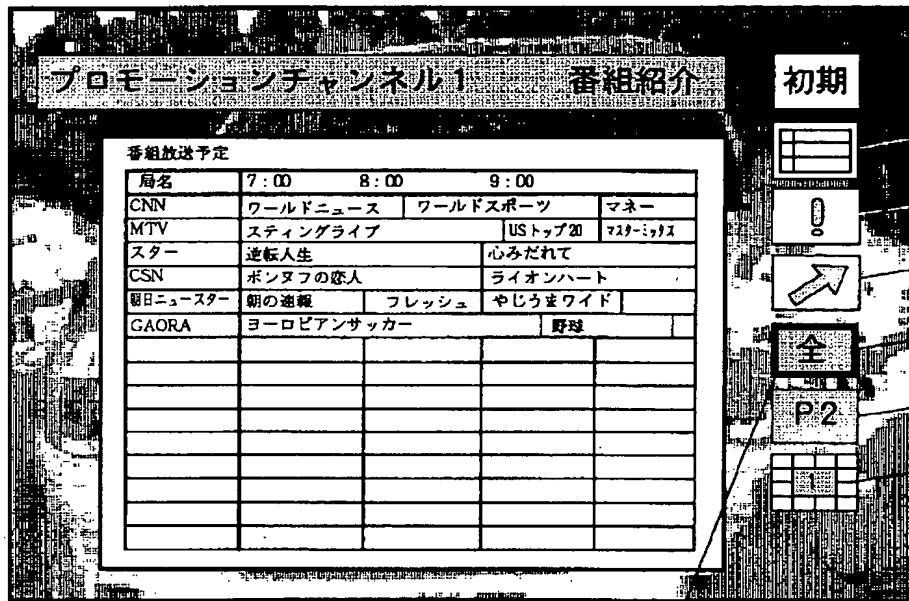 プロモーションチャンネル1 番組紹介
初期
番組放送予定
局名 7:00 8:00 9:00
CNN ワールドニュース ワールドスポーツ マネー
MTV スティングライブ USトップ20 マスターミックス
スター 逆転人生 心みだれて
CSN ポンヌフの恋人 ライオンハート
朝日ニュースター 朝の速報 フレッシュ やじうまワイド
GAORA ヨーロピアンサッカー 野球
!
全
P2